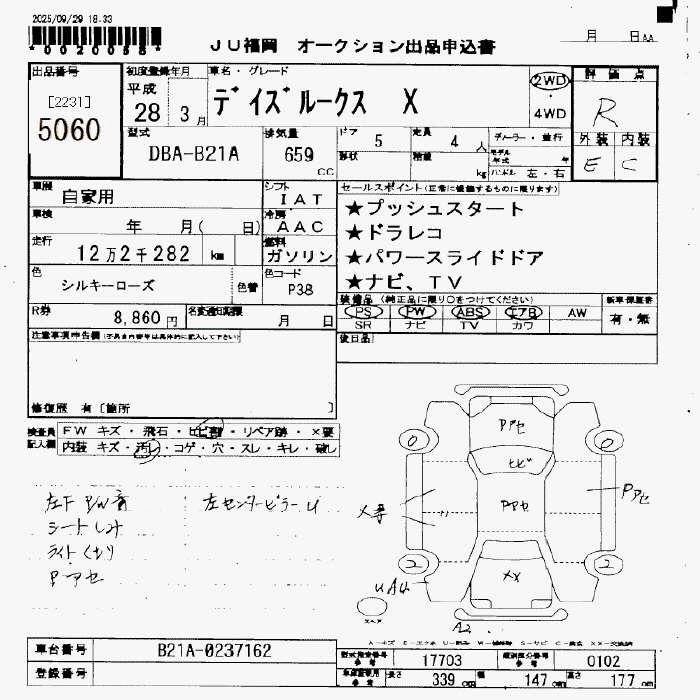 2025/09/29 18:33
*0020058*
JU福岡 オークション出品申込書
月 日AA
出品番号
[2231]
5060
初度登録年月
平成
28 3月
車名・グレード
デイズルークス X
2WD
4WD
評価点
R
外装 内装
E C
型式
DBA-B21A
排気量
659
CC
ドア
5
定員
4 人
形状
積量
kg
ディーラー・並行
モデル年式 年
ハンドル 左・右
車歴
自家用
シフト
IAT
車検
年 月( 日)
冷房
AAC
走行
12万2千282 km
燃料
ガソリン
色
シルキーローズ
色替
色コード
P38
R券
8,860 円
名変通知期限
月 日
セールスポイント(正常に機能するものに限ります)
★プッシュスタート
★ドラレコ
★パワースライドドア
★ナビ、TV
装備品 (純正品に限り○をつけてください)
PS PW ABS エアB AW
SR ナビ TV カワ
新車保証書
有・無
後日品
注意事項申告欄
修復歴 有 [箇所 ]
検査員
記入欄
FW キズ ・ 飛石 ・ ヒビ割 ・ リペア跡 ・ ×要
内装 キズ ・ 汚レ ・ コゲ ・ 穴 ・ スレ ・ キレ ・ 破レ
シートしみ
ライトくもり
Pアセ
左センターピラー U
Pアセ
0 0
ヒビ
Pアセ
Pアセ
2 2
XX
A2
スペア
車台番号
B21A-0237162
登録番号
型式指定番号
参考
17703
類別区分番号
参考
0102
車両重量
参考
長さ
339 cm
幅
147 cm
高さ
177 cm